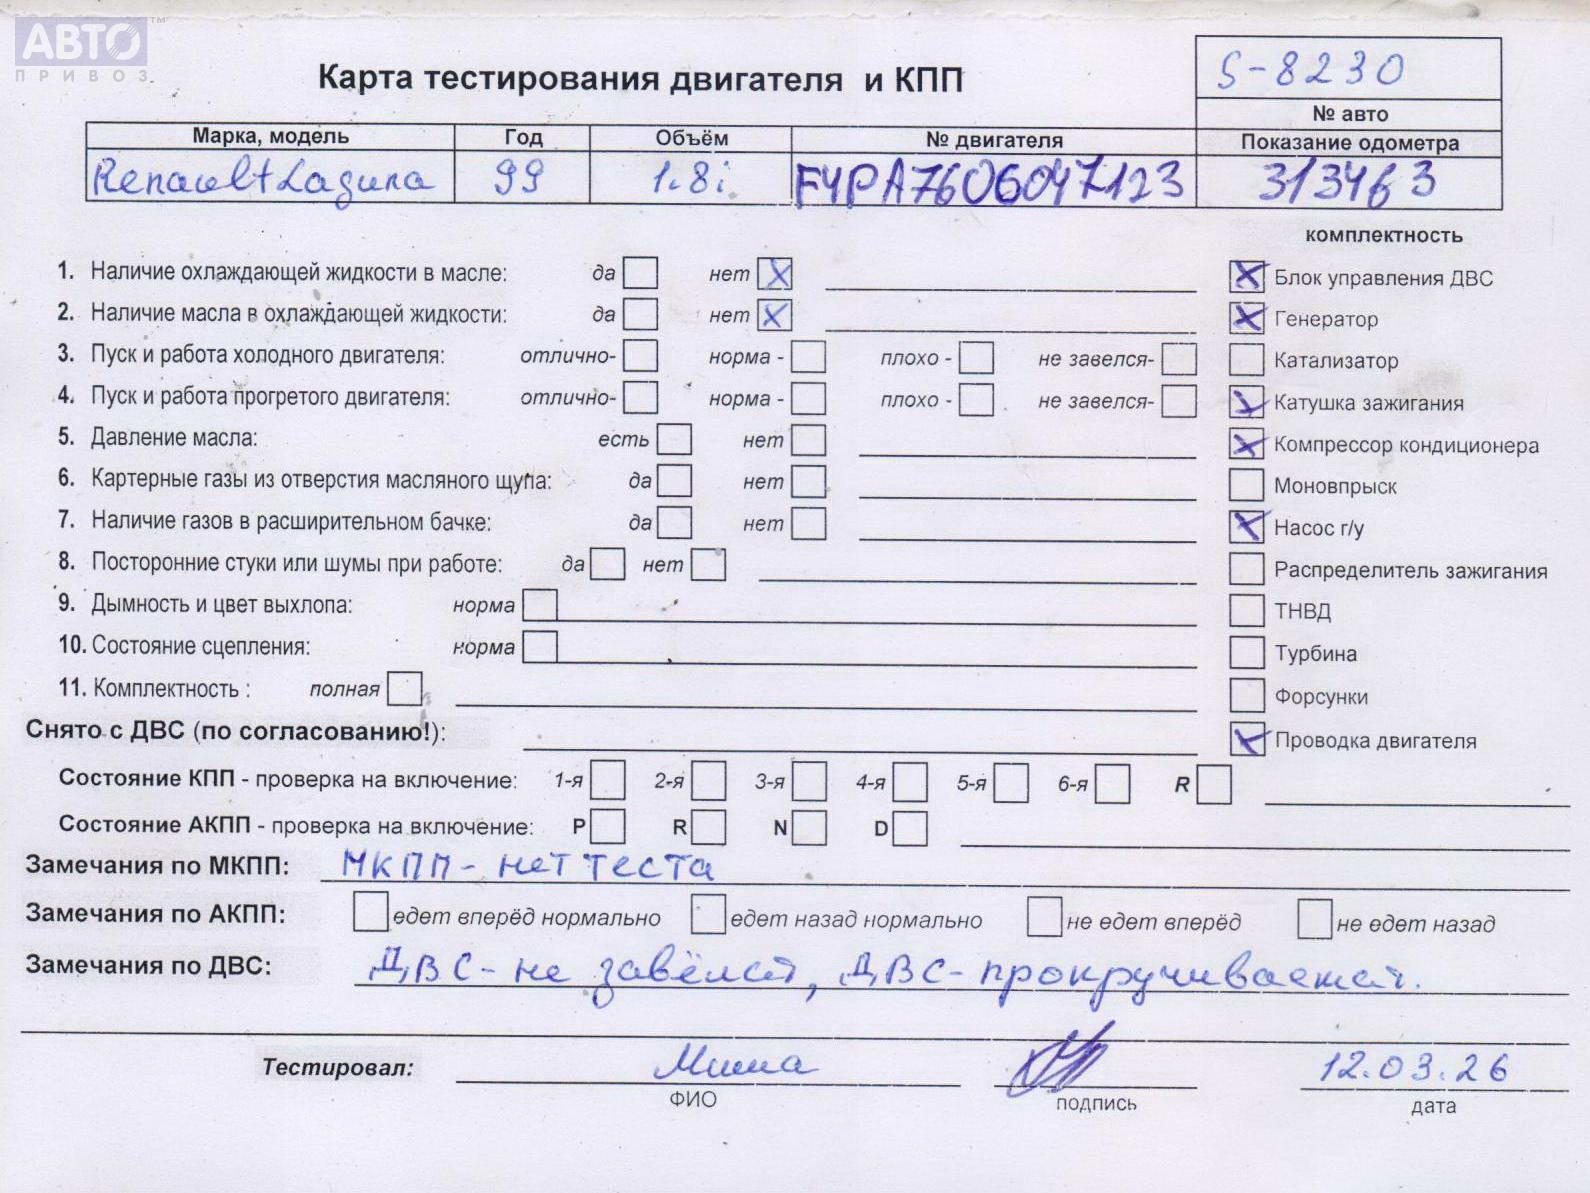 АВТО ™
ПРИВОЗ
Карта тестирования двигателя и КПП
S-8230
№ авто
Марка, модель Год Объём № двигателя Показание одометра
Renault Laguna 99 1.8i F4PA760G047123 313463
комплектность
1. Наличие охлаждающей жидкости в масле: да нет X
X Блок управления ДВС
2. Наличие масла в охлаждающей жидкости: да нет X
X Генератор
3. Пуск и работа холодного двигателя: отлично- норма - плохо - не завелся-
Катализатор
4. Пуск и работа прогретого двигателя: отлично- норма - плохо - не завелся-
X Катушка зажигания
5. Давление масла: есть нет
X Компрессор кондиционера
6. Картерные газы из отверстия масляного щупа: да нет
Моновпрыск
7. Наличие газов в расширительном бачке: да нет
X Насос г/у
8. Посторонние стуки или шумы при работе: да нет
Распределитель зажигания
9. Дымность и цвет выхлопа: норма
ТНВД
10. Состояние сцепления: норма
Турбина
11. Комплектность : полная
Форсунки
Снято с ДВС (по согласованию!):
X Проводка двигателя
Состояние КПП - проверка на включение: 1-я 2-я 3-я 4-я 5-я 6-я R
Состояние АКПП - проверка на включение: P R N D
Замечания по МКПП: МКПП - нет теста
Замечания по АКПП: едет вперёд нормально едет назад нормально не едет вперёд не едет назад
Замечания по ДВС: ДВС - не завёлся, ДВС - прокручивается.
Тестировал: Миша 12.03.26
ФИО подпись дата